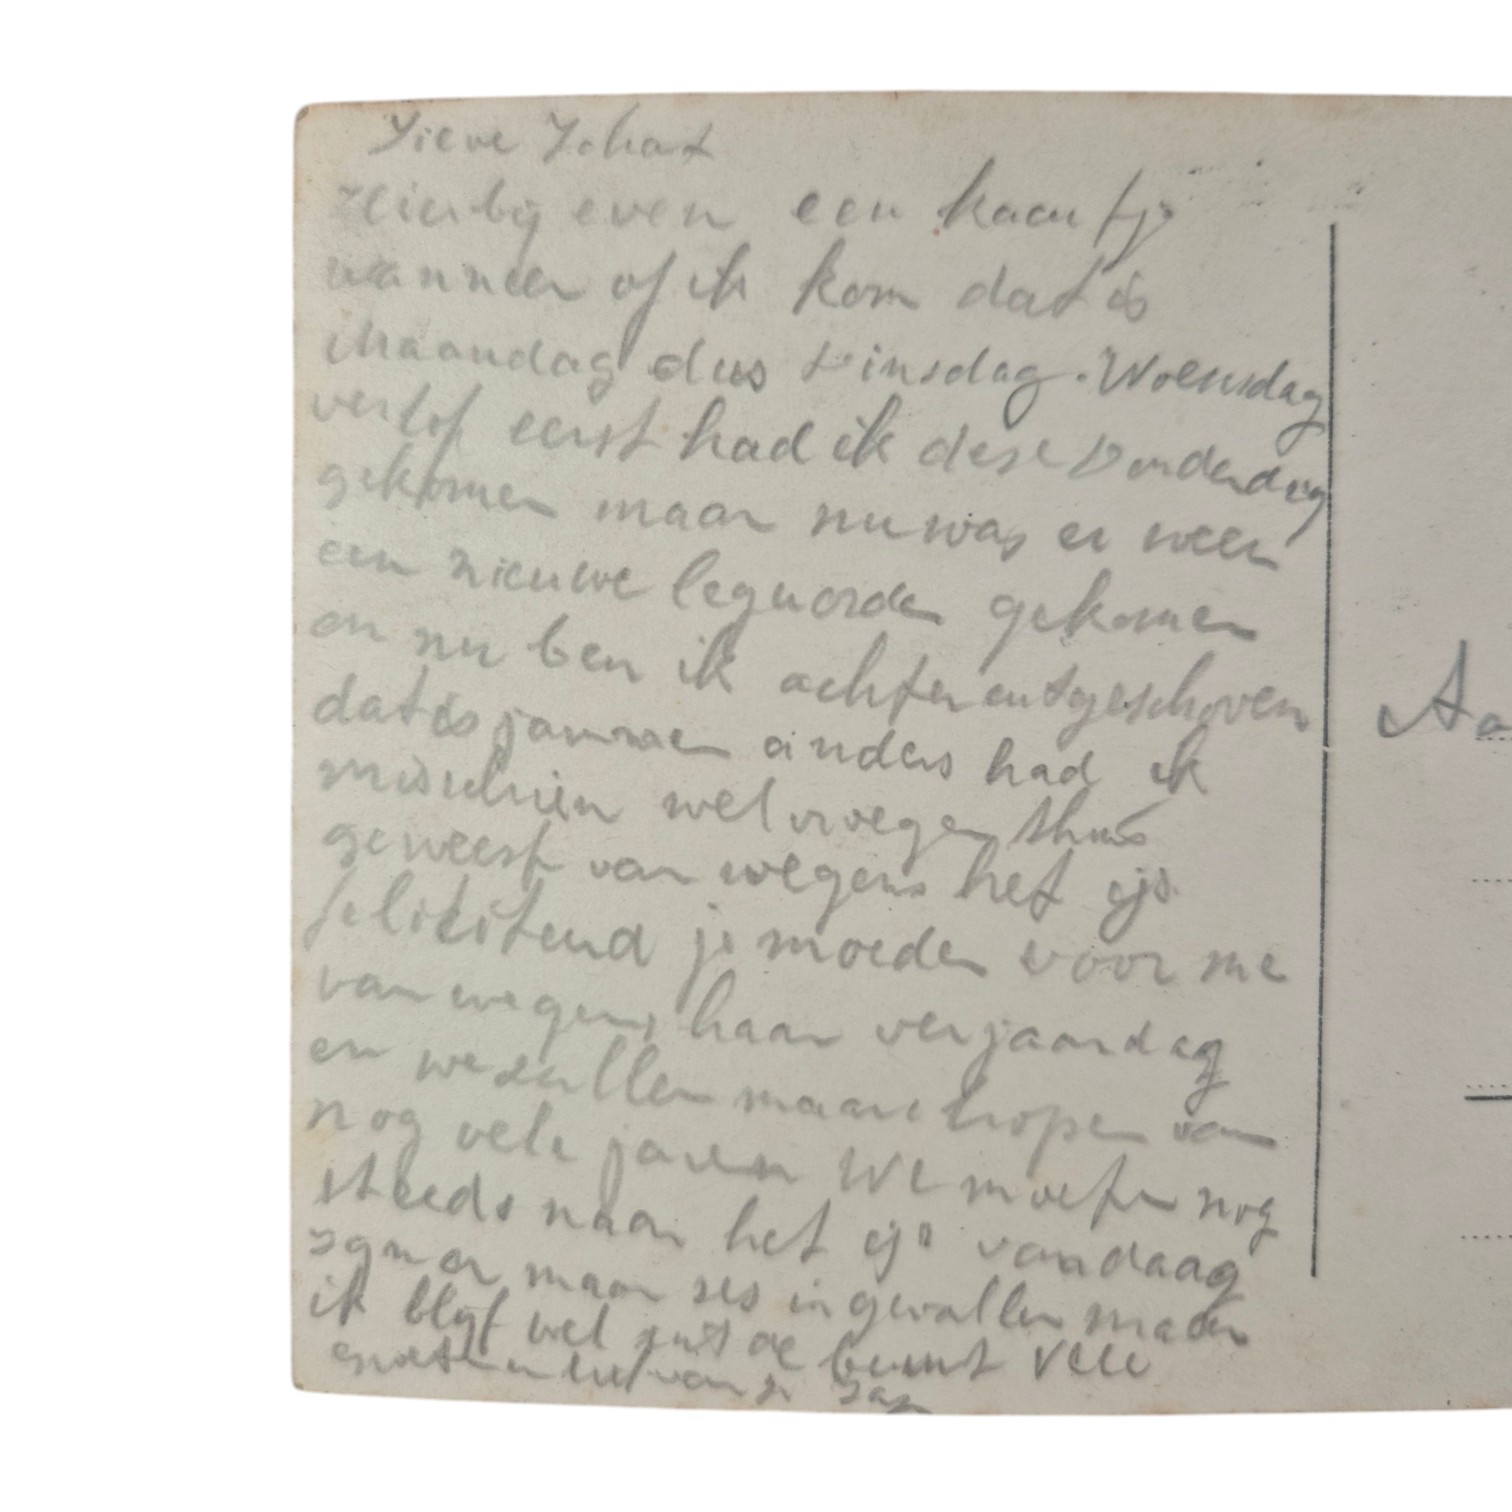 Lieve Johat
Hierbij even een kaartje
wanneer of ik kom dat is
Maandag dus Dinsdag. Woensdag
verlof eerst had ik dese Donderdag
gekomen maar nu was er weer
een nieuwe leguorder gekomen
en nu ben ik achteruitgeschoven
dat is jammer anders had ik
misschien wel vroeger thuis
geweest van wegens het ijs
felisiteerd je moeder voor me
van wegens haar verjaardag
en we zullen maar hopen van
nog vele jaren We moeten nog
steeds naar het ijs vandaag
zijn er maar ses in gevallen maar
ik blijf wel uit de buurt Vele
groeten van je Jan
Aa